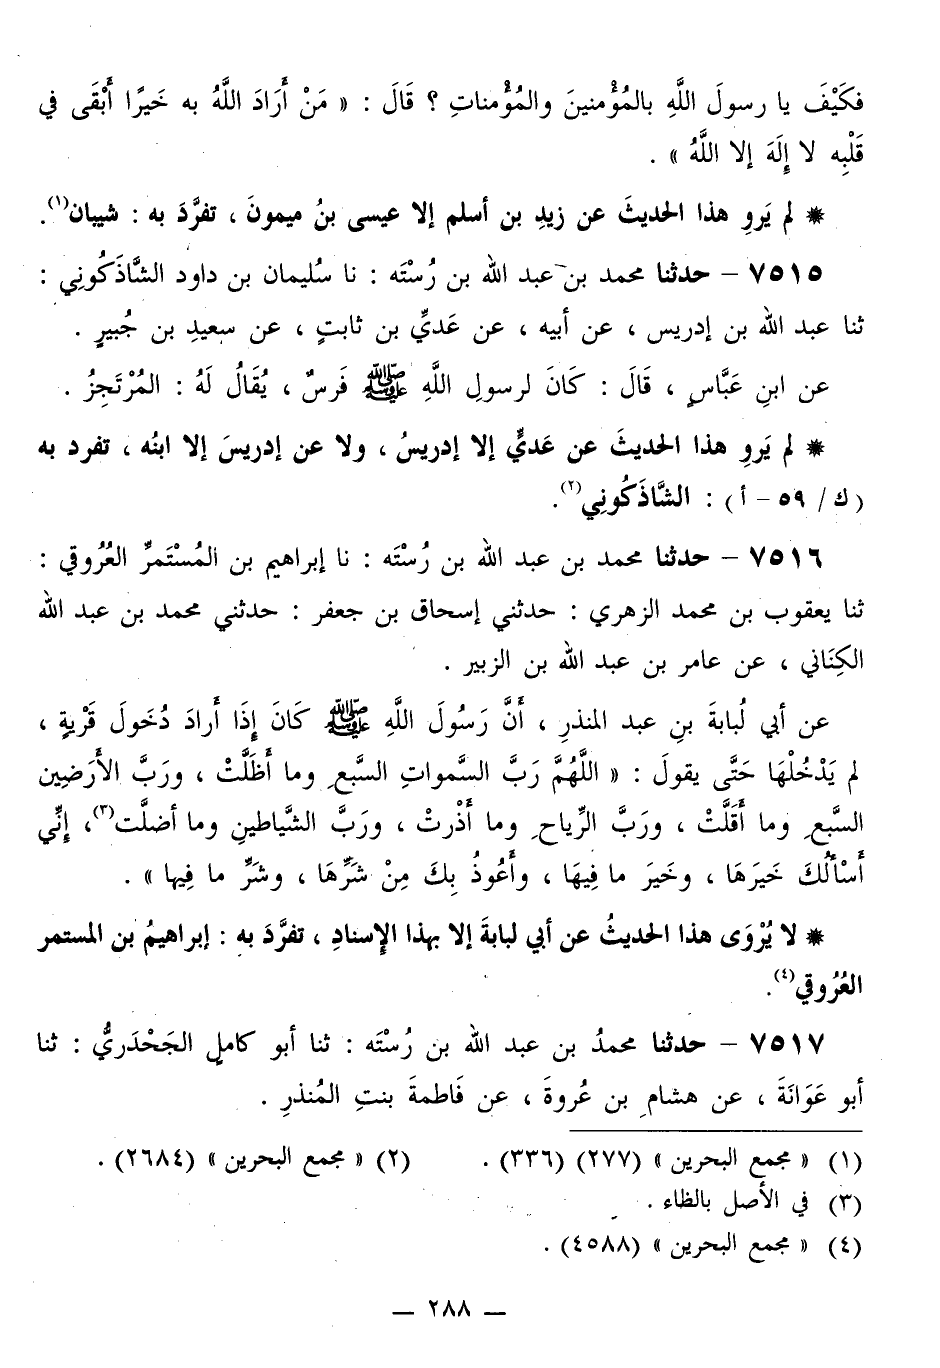 فكَيْفَ يا رسولَ اللَّهِ بالمُؤْمنينَ والمُؤْمناتِ ؟ قَالَ : « مَنْ أَرَادَ اللَّهُ به خَيرًا أَبْقَى في
قَلْبِه لا إِلَهَ إلا اللَّهُ » .
* لم يَروِ هذا الحديثَ عن زيدِ بن أسلم إلا عيسى بنُ ميمونَ ، تفرَّدَ به : شيبان(١).
٧٥١٥ – حدثنا محمد بن عبد الله بن رُسْتَه : نا سُليمان بن داود الشَّاذَكُونِي :
ثنا عبد الله بن إدريس ، عن أبيه ، عن عَديِّ بن ثابتٍ ، عن سعيدِ بن جُبيرٍ .
عن ابنِ عَبَّاسٍ ، قَالَ : كَانَ لرسولِ اللَّهِ ﷺ فَرسٌ ، يُقَالُ لَهُ : المُرْتَجِزُ .
* لم يَروِ هذا الحديثَ عن عَديٍّ إلا إدريسُ ، ولا عن إدريسَ إلا ابنُه ، تفرد به
(ك / ٥٩ – أ) : الشَّاذَكُونِي(٢).
٧٥١٦ – حدثنا محمد بن عبد الله بن رُسْتَه : نا إبراهيم بن المُسْتَمرِّ العُرُوقي :
ثنا يعقوب بن محمد الزهري : حدثني إسحاق بن جعفر : حدثني محمد بن عبد الله
الكِنَاني ، عن عامر بن عبد الله بن الزبير .
عن أبي لُبابةَ بنِ عبد المنذرِ ، أَنَّ رَسُولَ اللَّهِ ﷺ كَانَ إِذَا أَرادَ دُخَولَ قَرْيةٍ ،
لم يَدْخُلْهَا حَتَّى يقولَ : « اللَّهُمَّ رَبَّ السَّمواتِ السَّبعِ وما أَظَلَّتْ ، ورَبَّ الأَرَضِين
السَّبعِ وما أَقَلَّتْ ، ورَبَّ الرِّياحِ وما أَذْرتْ ، ورَبَّ الشَّياطينِ وما أضلَّت(٣)، إِنِّي
أَسْأَلُكَ خَيرَهَا ، وخَيرَ ما فِيهَا ، وأَعُوذُ بِكَ مِنْ شَرِّهَا ، وشرِّ ما فِيها » .
* لا يُرْوَى هذا الحديثُ عن أبي لبابةَ إلا بهذا الإسنادِ ، تفرَّدَ به : إبراهيمُ بن المستمر
العُرُوقي(٤).
٧٥١٧ – حدثنا محمدُ بن عبد الله بن رُسْتَه : ثنا أبو كاملٍ الجَحْدَريُّ : ثنا
أبو عَوَانَةَ ، عن هشامِ بن عُروةَ ، عن فَاطمةَ بنتِ المُنذرِ .
(١) « مجمع البحرين » (٢٧٧) (٣٣٦) . (٢) « مجمع البحرين » (٢٦٨٤) .
(٣) في الأصل بالظاء .
(٤) « مجمع البحرين » (٤٥٨٨) .
— ٢٨٨ —